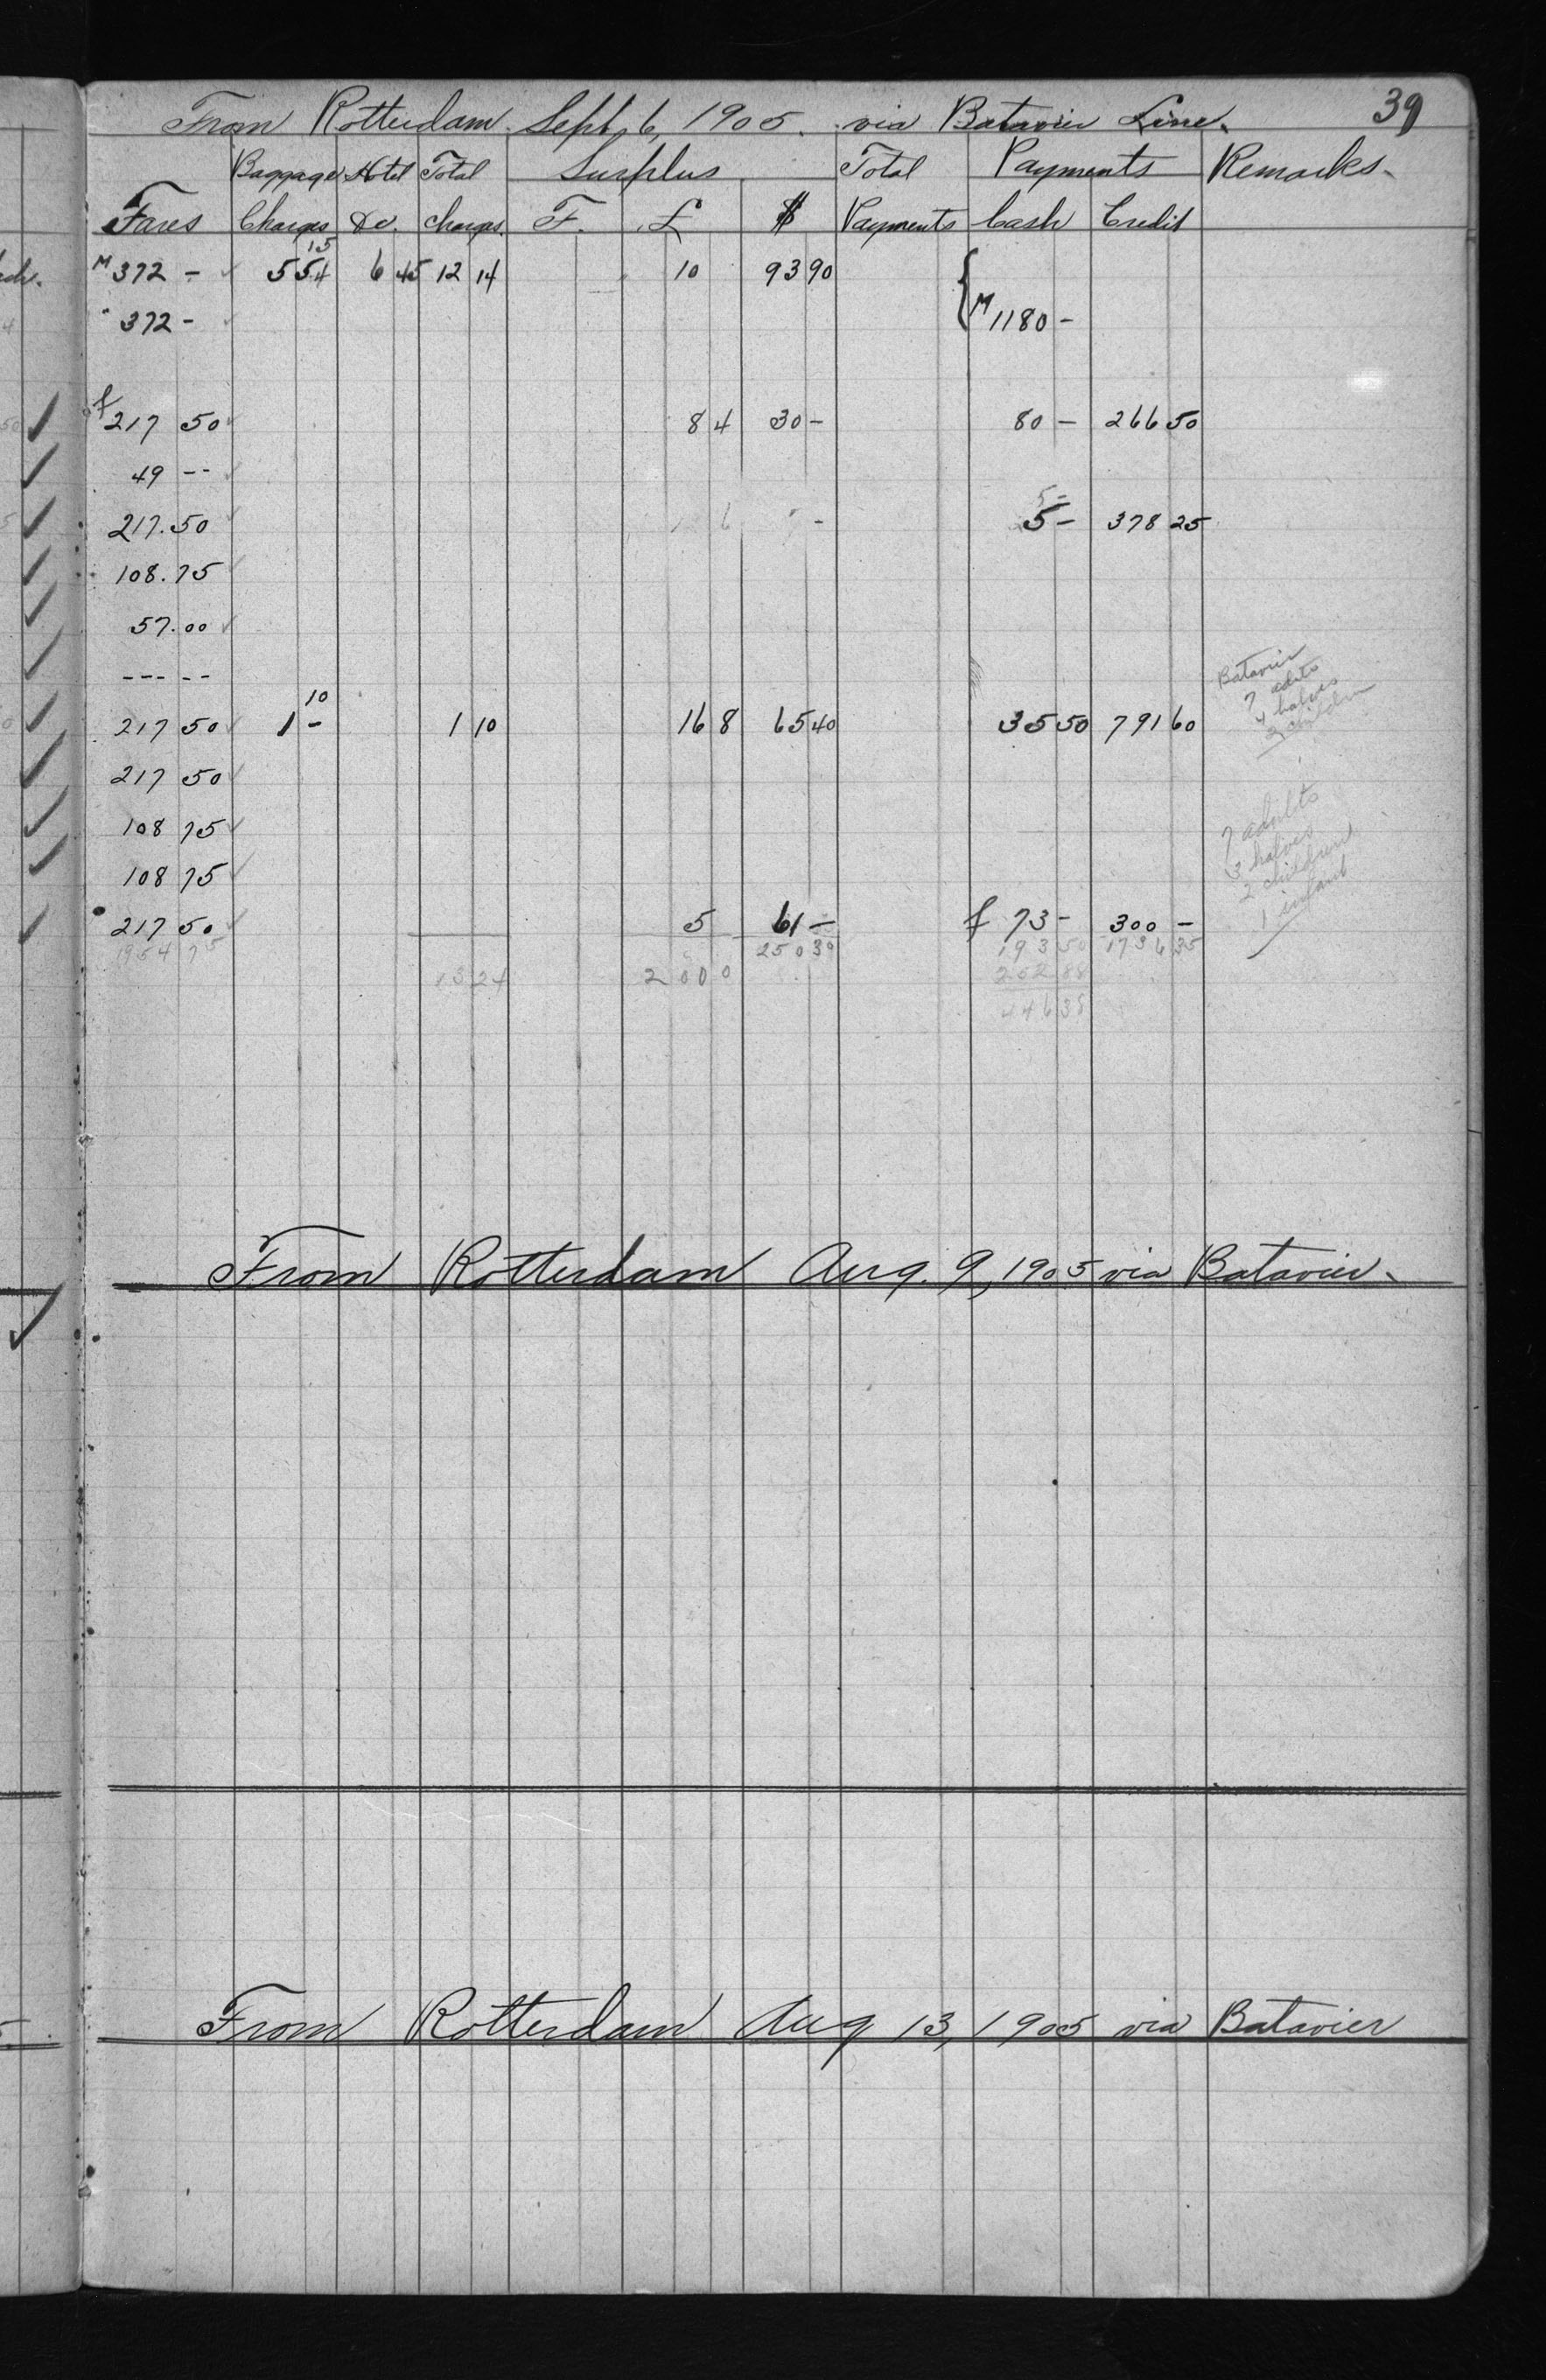 39
From Rotterdam Sept. 6, 1905. via Batavier Line.
Baggage Hotel Total Surplus Total Payments Remarks.
Fares Charges &c. Charges. F. £ $ Payments Cash Credit
15
M 372 - 5 54 6 45 12 14 10 93 90
" 372 - M 1180 -
f 217 50 8 4 30 - 80 - 266 50
49 --
5 -
217.50 6 - 5 - 378 25
108.75
57.00
--- --
Batavier
7 adts
4 halves
2 children
10
217 50 1 - 1 10 16 8 65 40 35 50 791 60
217 50
108 75
108 75
7 adults
3 halves
2 children
1 infant
217 50 5 61 - f 73 - 300 -
1954 75 250 39 193 50 1736 35
13 24 2 0 0 0 252 88
446 38
From Rotterdam Aug. 9, 1905 via Batavier.
From Rotterdam Aug 13, 1905 via Batavier